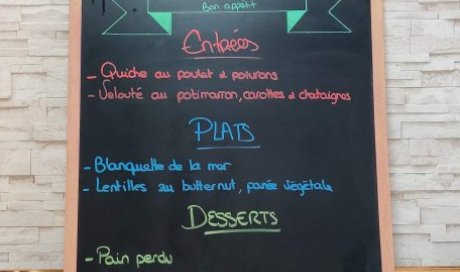 Bon appétit
Entrées
- Quiche au poulet et poivrons
- Velouté au potimarron, carottes et chataignes
PLATS
- Blanquette de la mer
- Lentilles au butternut, panée végétale
DESSERTS
- Pain perdu